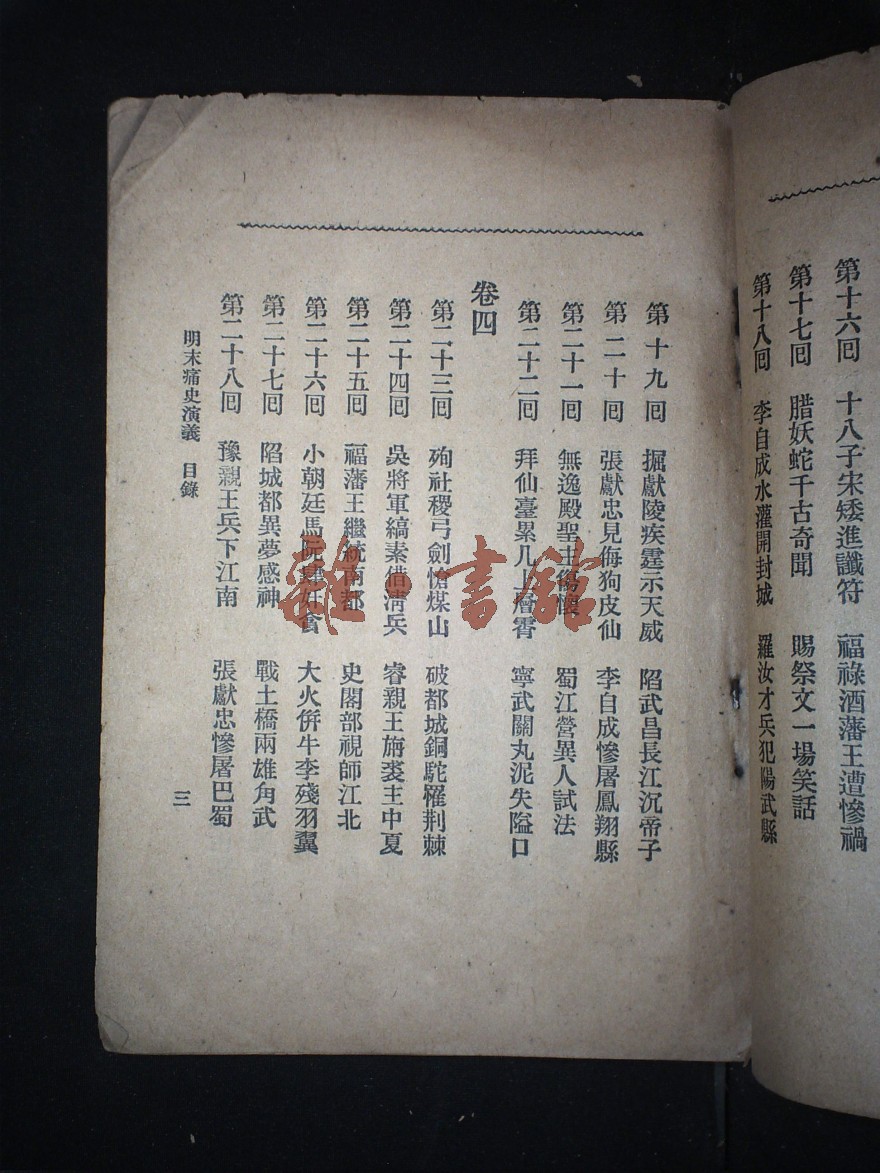 第十六回 十八子宋矮進讖符 福祿酒藩王遭慘禍
第十七回 腊妖蛇千古奇聞 賜祭文一場笑話
第十八回 李自成水灌開封城 羅汝才兵犯陽武縣
第十九回 掘獻陵疾霆示天威 陷武昌長江沉帝子
第二十回 張獻忠見侮狗皮仙 李自成慘屠鳳翔縣
第二十一回 無逸殿聖主傷懷 蜀江營異人試法
第二十二回 拜仙臺累几上層霄 寧武關丸泥失隘口
卷四
第二十三回 殉社稷弓劍愴煤山 破都城銅駝罹荆棘
第二十四回 吳將軍縞素借清兵 睿親王旃裘主中夏
第二十五回 福藩王繼統南都 史閣部視師江北
第二十六回 小朝廷馬阮肆奸貪 大火併牛李殘羽翼
第二十七回 陷城都異夢感神 戰土橋兩雄角武
第二十八回 豫親王兵下江南 張獻忠慘屠巴蜀
明末痛史演義 目錄
三
雜·書館